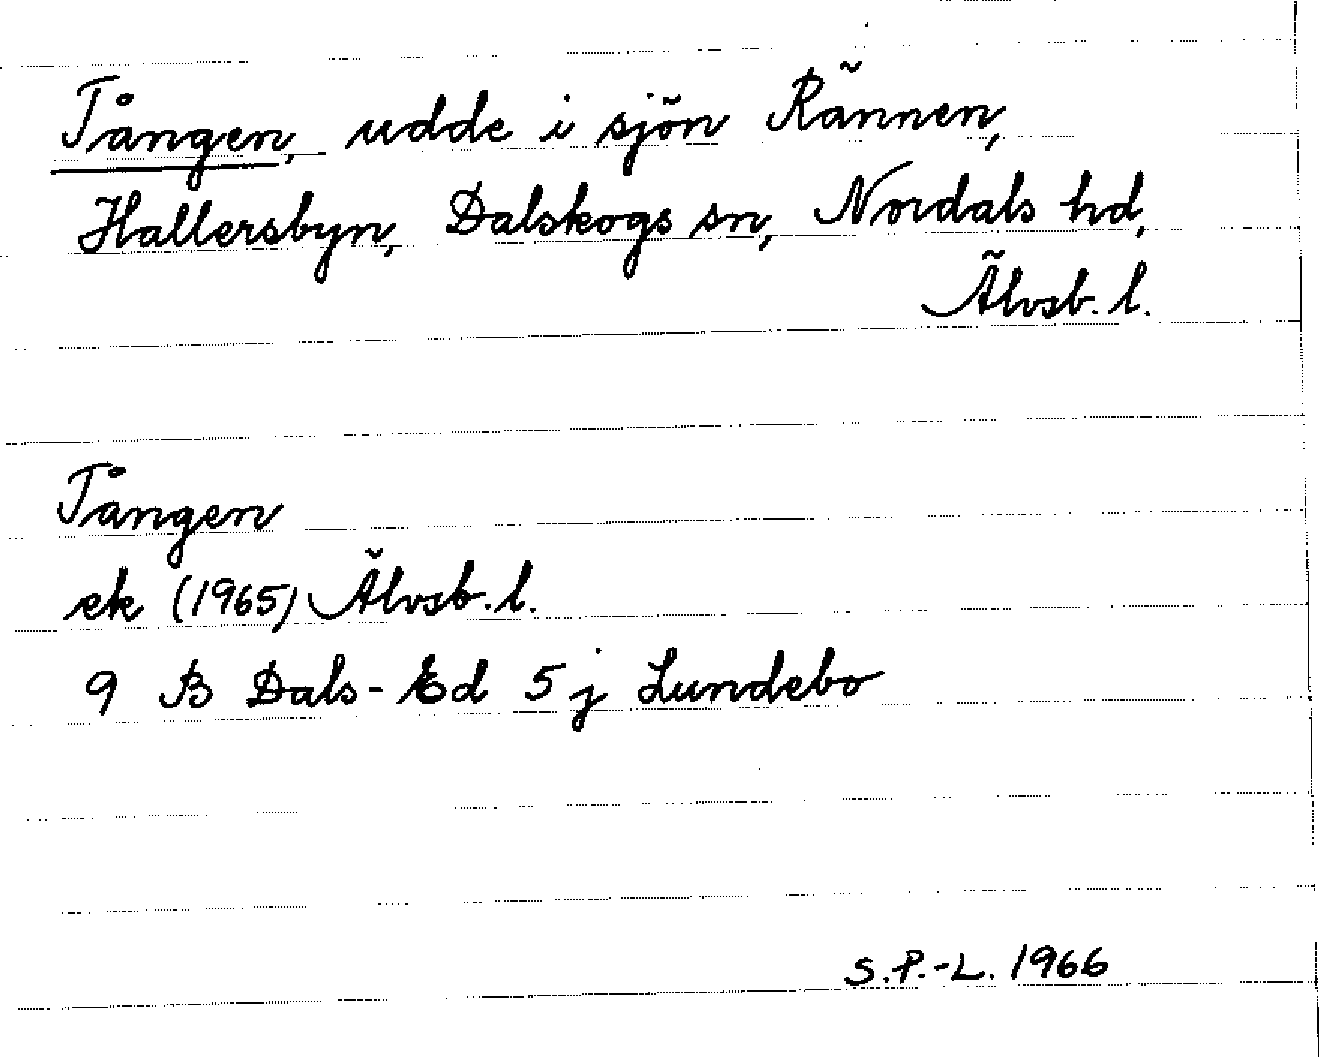 Tången, udde i sjön Rännen,
Hallersbyn, Dalskogs sn, Nordals hd,
Älvsb. l.
Tången
ek (1965) Älvsb. l.
9 B Dals-Ed 5 j Lundebo
S.P.-L. 1966